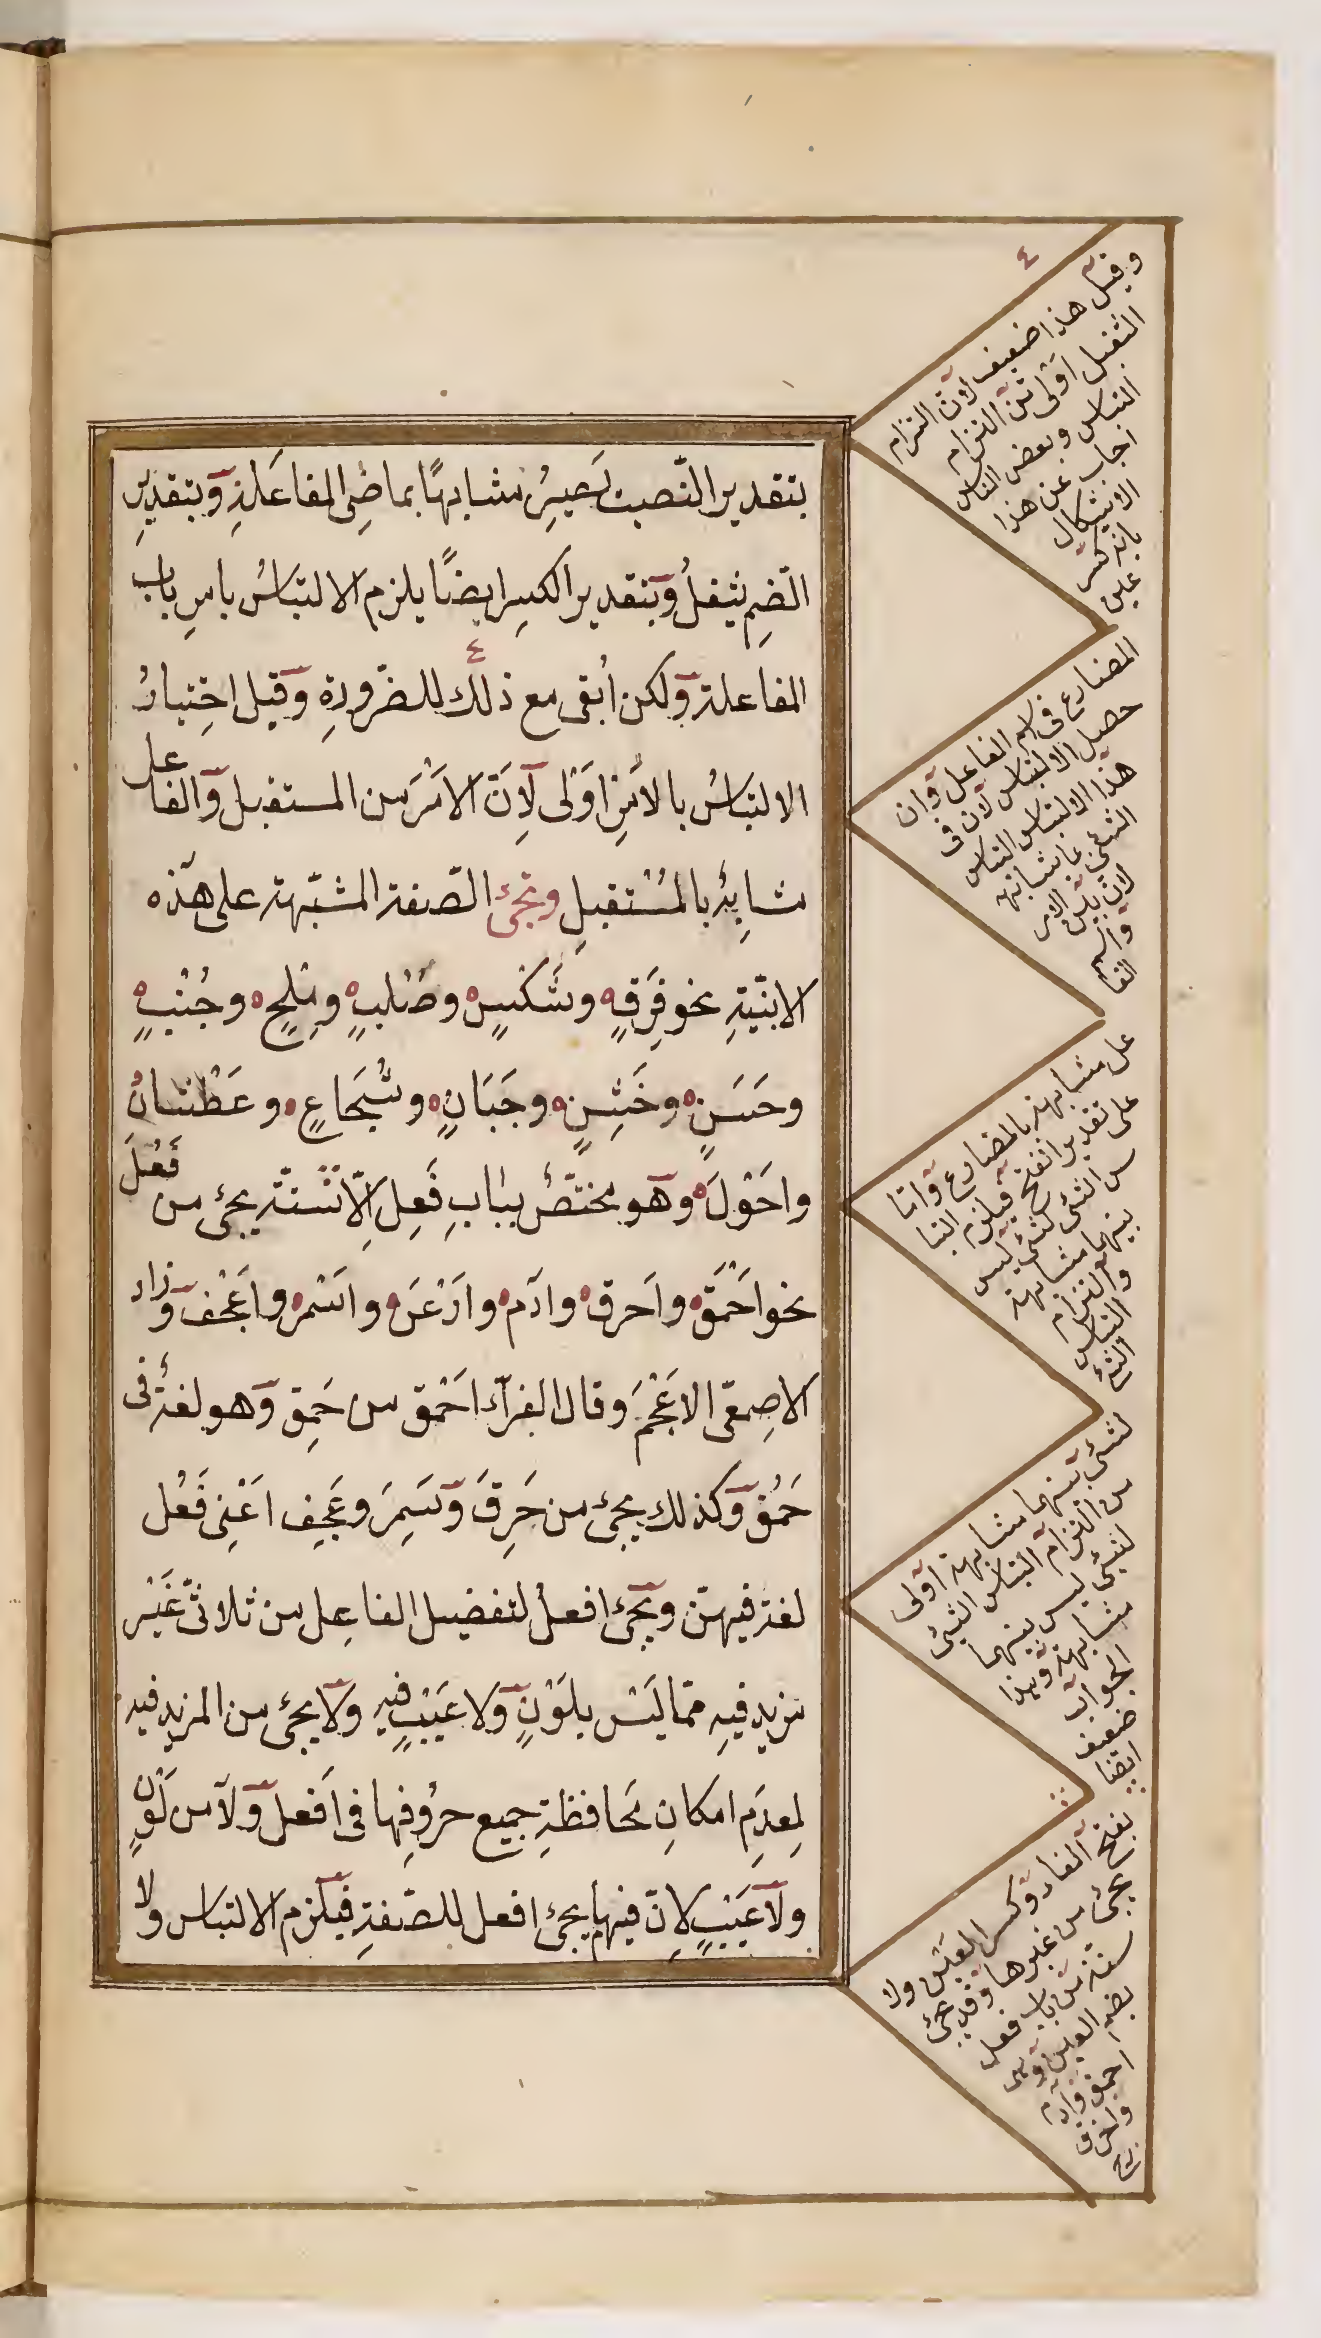 بتقدير النّصب يَصيرُ مشابهًا بماضِى المفاعَلةِ وبتقديرِ
الضّمِ يثقلُ وبتقدير الكسرِ ايضًا يلزم الالتباسُ بامرِ باب
المفاعلة ولكن أبقى مع ذلك للضّرورةِ وقيل اختيارُ
الالتباسُ بالأمرِ اَوْلى لِاَنّ الاَمْرَ من المستقبل والفاعل
مشابِهٌ بالمُسْتقبلِ وتجئ الصّفة المشبّهة على هذه
الابنيةِ نحو فَرِقٍ وشَكْسٍ وصُلبٍ ومِلحٍ وجُنُبٍ
وحَسَنٍ وخَشِنٍ وجَبَانٍ وشُجَاعٍ وعَطْشانُ
واحَوْلَ وهو مختصٌّ ببابِ فَعِل اِلّا ستّة يجئ من فَعُلَ
نحو احَمْقَ واَخرق وادَم وارْعَن واسْمر واعَجْف وزاد
الاصِمعىّ الاعَجْمَ وقال الفرآء احَمْق من حَمِق وهو لغةٌ فى
حَمُق وكذلك يجئ من خَرِقَ وسَمِرَ وعَجِف اعَنِى فَعُل
لغة فيهنّ ويجئ افعلُ لتفضيل الفاعِل من ثلاثىّ غَيْر
مزيد فيهِ ممّا ليَسْ بلَوْنٍ ولا عَيْبٍ فيه ولا يجئ من المزيد فيه
لِعدَمِ امكانِ مُحَافظةِ جميع حرُوفِها فى اَفعل ولا من لَوْنٍ
ولا عَيْبٍ لِانّ فيهما يجئ افعل للصّفةِ فيلزم الالتباس ولا
٤
وقيل هذا ضعيف لان التزام
الثقيل اولى من التزام
التباس وبعض الناس
اجاب عن هذا
الاشكال
بانه كسر
عين
المضارع فى اسم الفاعل وان
حصل الالتباس لان فى
هذا الالتباس التباس
الشئ بما شابهه
لان بين الامر
واسم
الفا
عل مشابهة بالمضارع واما
على تقدير الفتح فيلزم التبا
س الشئ لشئ ليس
بينهما مشابهة
والتزام
التباس
الشئ
لشئ بينهما مشابهة اولى
من التزام التباس الشئ
لشئ ليس بينهما
مشابهة وهذا
الجواب
ضعيف
ايضا
بفتح الفاء وكسر العين ولا
يجئ من غيرها وقد يجئ
ستة من باب فعل
بضم العين وهى
احمق وادم
واخرق